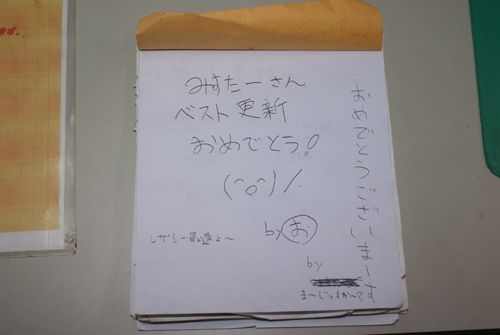 みすたーさん
ベスト更新
おめでとう!
(^o^)/.
by お
レガシー最速よ〜
おめでとうございまーす
by
ま〜じっすか〜?
す。